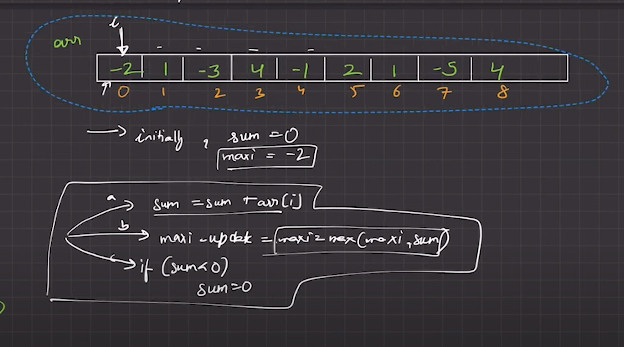 i
arr
-2 1 -3 4 -1 2 1 -5 4
0 1 2 3 4 5 6 7 8
→ initially, sum = 0
maxi = -2
a → sum = sum + arr[i]
b → maxi - update = maxi = max(maxi, sum)
→ if (sum < 0)
sum = 0